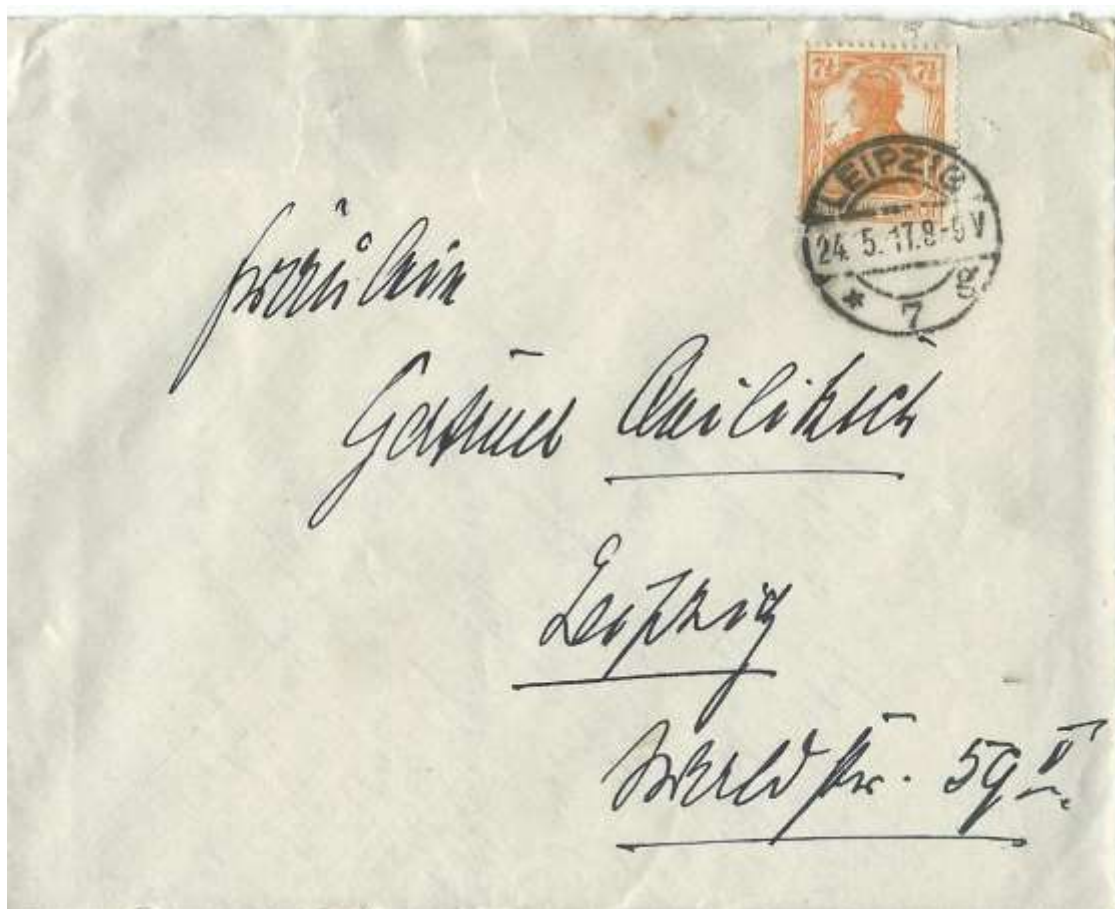 7½ 7½
LEIPZIG
24.5.17.8-9V
* 7 g
Fräulein
Gertrud
Leipzig
Waldstr. 59 II